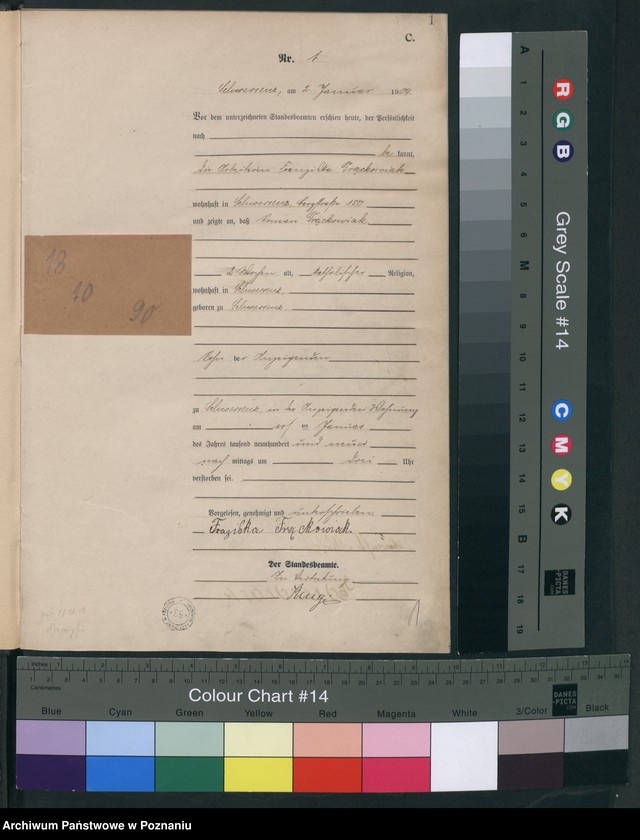 1
C.
Nr. 1
Schwersenz, am 2. Januar 1909.
Vor dem unterzeichneten Standesbeamten erschien heute, der Persönlichkeit
nach
be kannt,
die Arbeiterin Franziska Frąckowiak
wohnhaft in Schwersenz,
und zeigte an, daß Roman Frąckowiak
2 Wochen alt, katholischer Religion,
wohnhaft in Schwersenz
geboren zu Schwersenz
Sohn der Anzeigenden
zu Schwersenz, in der Anzeigenden Wohnung
am Januar
des Jahres tausend neunhundert und neun
nach mittags um drei Uhr
verstorben sei.
Vorgelesen, genehmigt und unterschrieben
Frąckowiak
Der Standesbeamte.
In Vertretung
18
10
90
A 1 2 3 4 5 6 M 8 9 10 11 12 13 14 15 B 17 18 19
R G B
Grey Scale #14
C M Y K
DANES-PICTA
Inches
Centimetres
Colour Chart #14
DANES-PICTA.COM
Blue Cyan Green Yellow Red Magenta White 3/Color Black
Archiwum Państwowe w Poznaniu